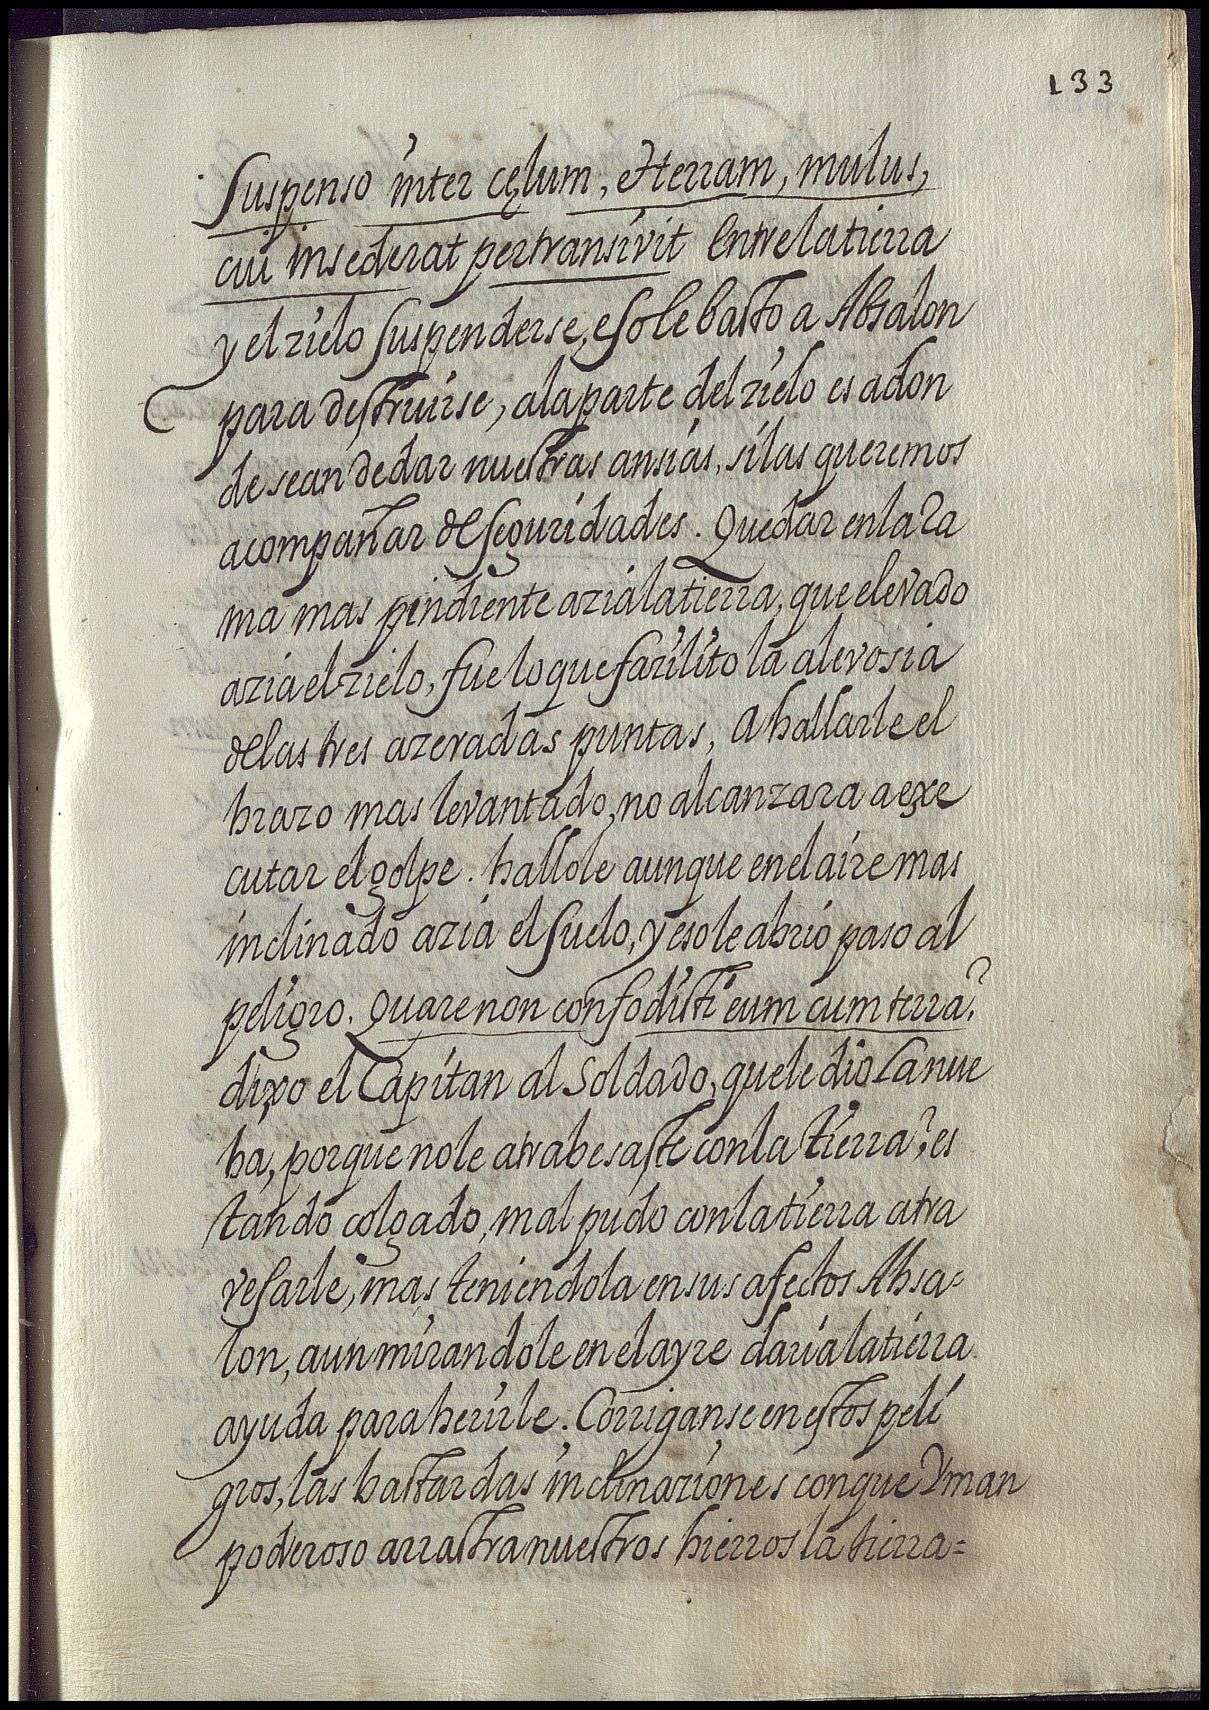 133
Suspenso inter cęlum, et terram, mulus,
cui insederat pertransivit Entre la tierra
y el zielo suspenderse, eso le basto a Absalon
para destruirse, a la parte del zielo es adon
de se an de dar nuestras ansias, si las queremos
acompañar de seguridades. Quedar en la Ra
ma mas pindiente azia la tierra, que elevado
azia el zielo, fue lo que fazilito la alevosia
de las tres azeradas puntas, A hallarle el
brazo mas levantado, no alcanzara a exe
cutar el golpe. hallole aunque en el aire mas
inclinado azia el suelo, y eso le abrio paso al
peligro. Quare non confodisti eum cum terra?
dixo el Capitan al Soldado, que le dio la nue
ba, porque no le atrabesaste con la tierra? es
tando colgado, mal pudo con la tierra atra
vesarle, mas teniendola en sus afectos Absa=
lon, aun mirandole en el ayre daria la tierra
ayuda para herirle. Corriganse en estos peli
gros, las bastardas inclinaziones con que Yman
poderoso arrastra nuestros hierros la tierra=